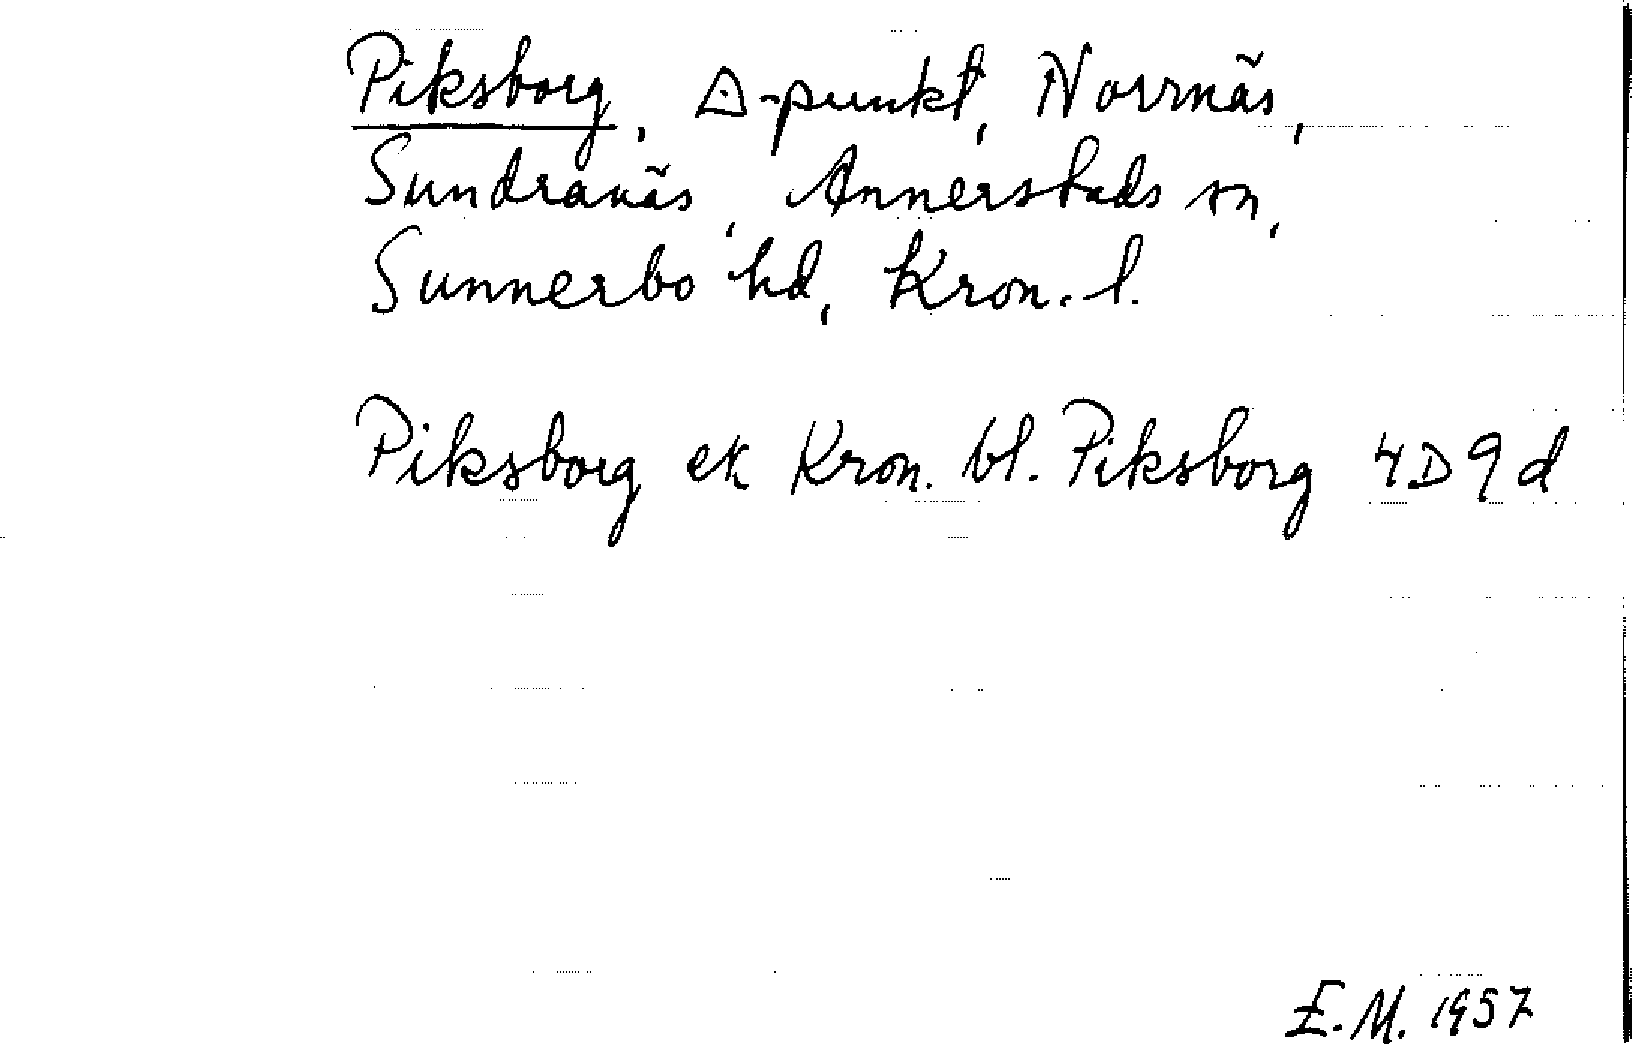 Piksborg, △-punkt, Norrnäs,
Sundranäs, Annerstads sn,
Sunnerbo hd, Kron. l.
Piksborg ek Kron. bl. Piksborg 4D9d
E.M. 1957